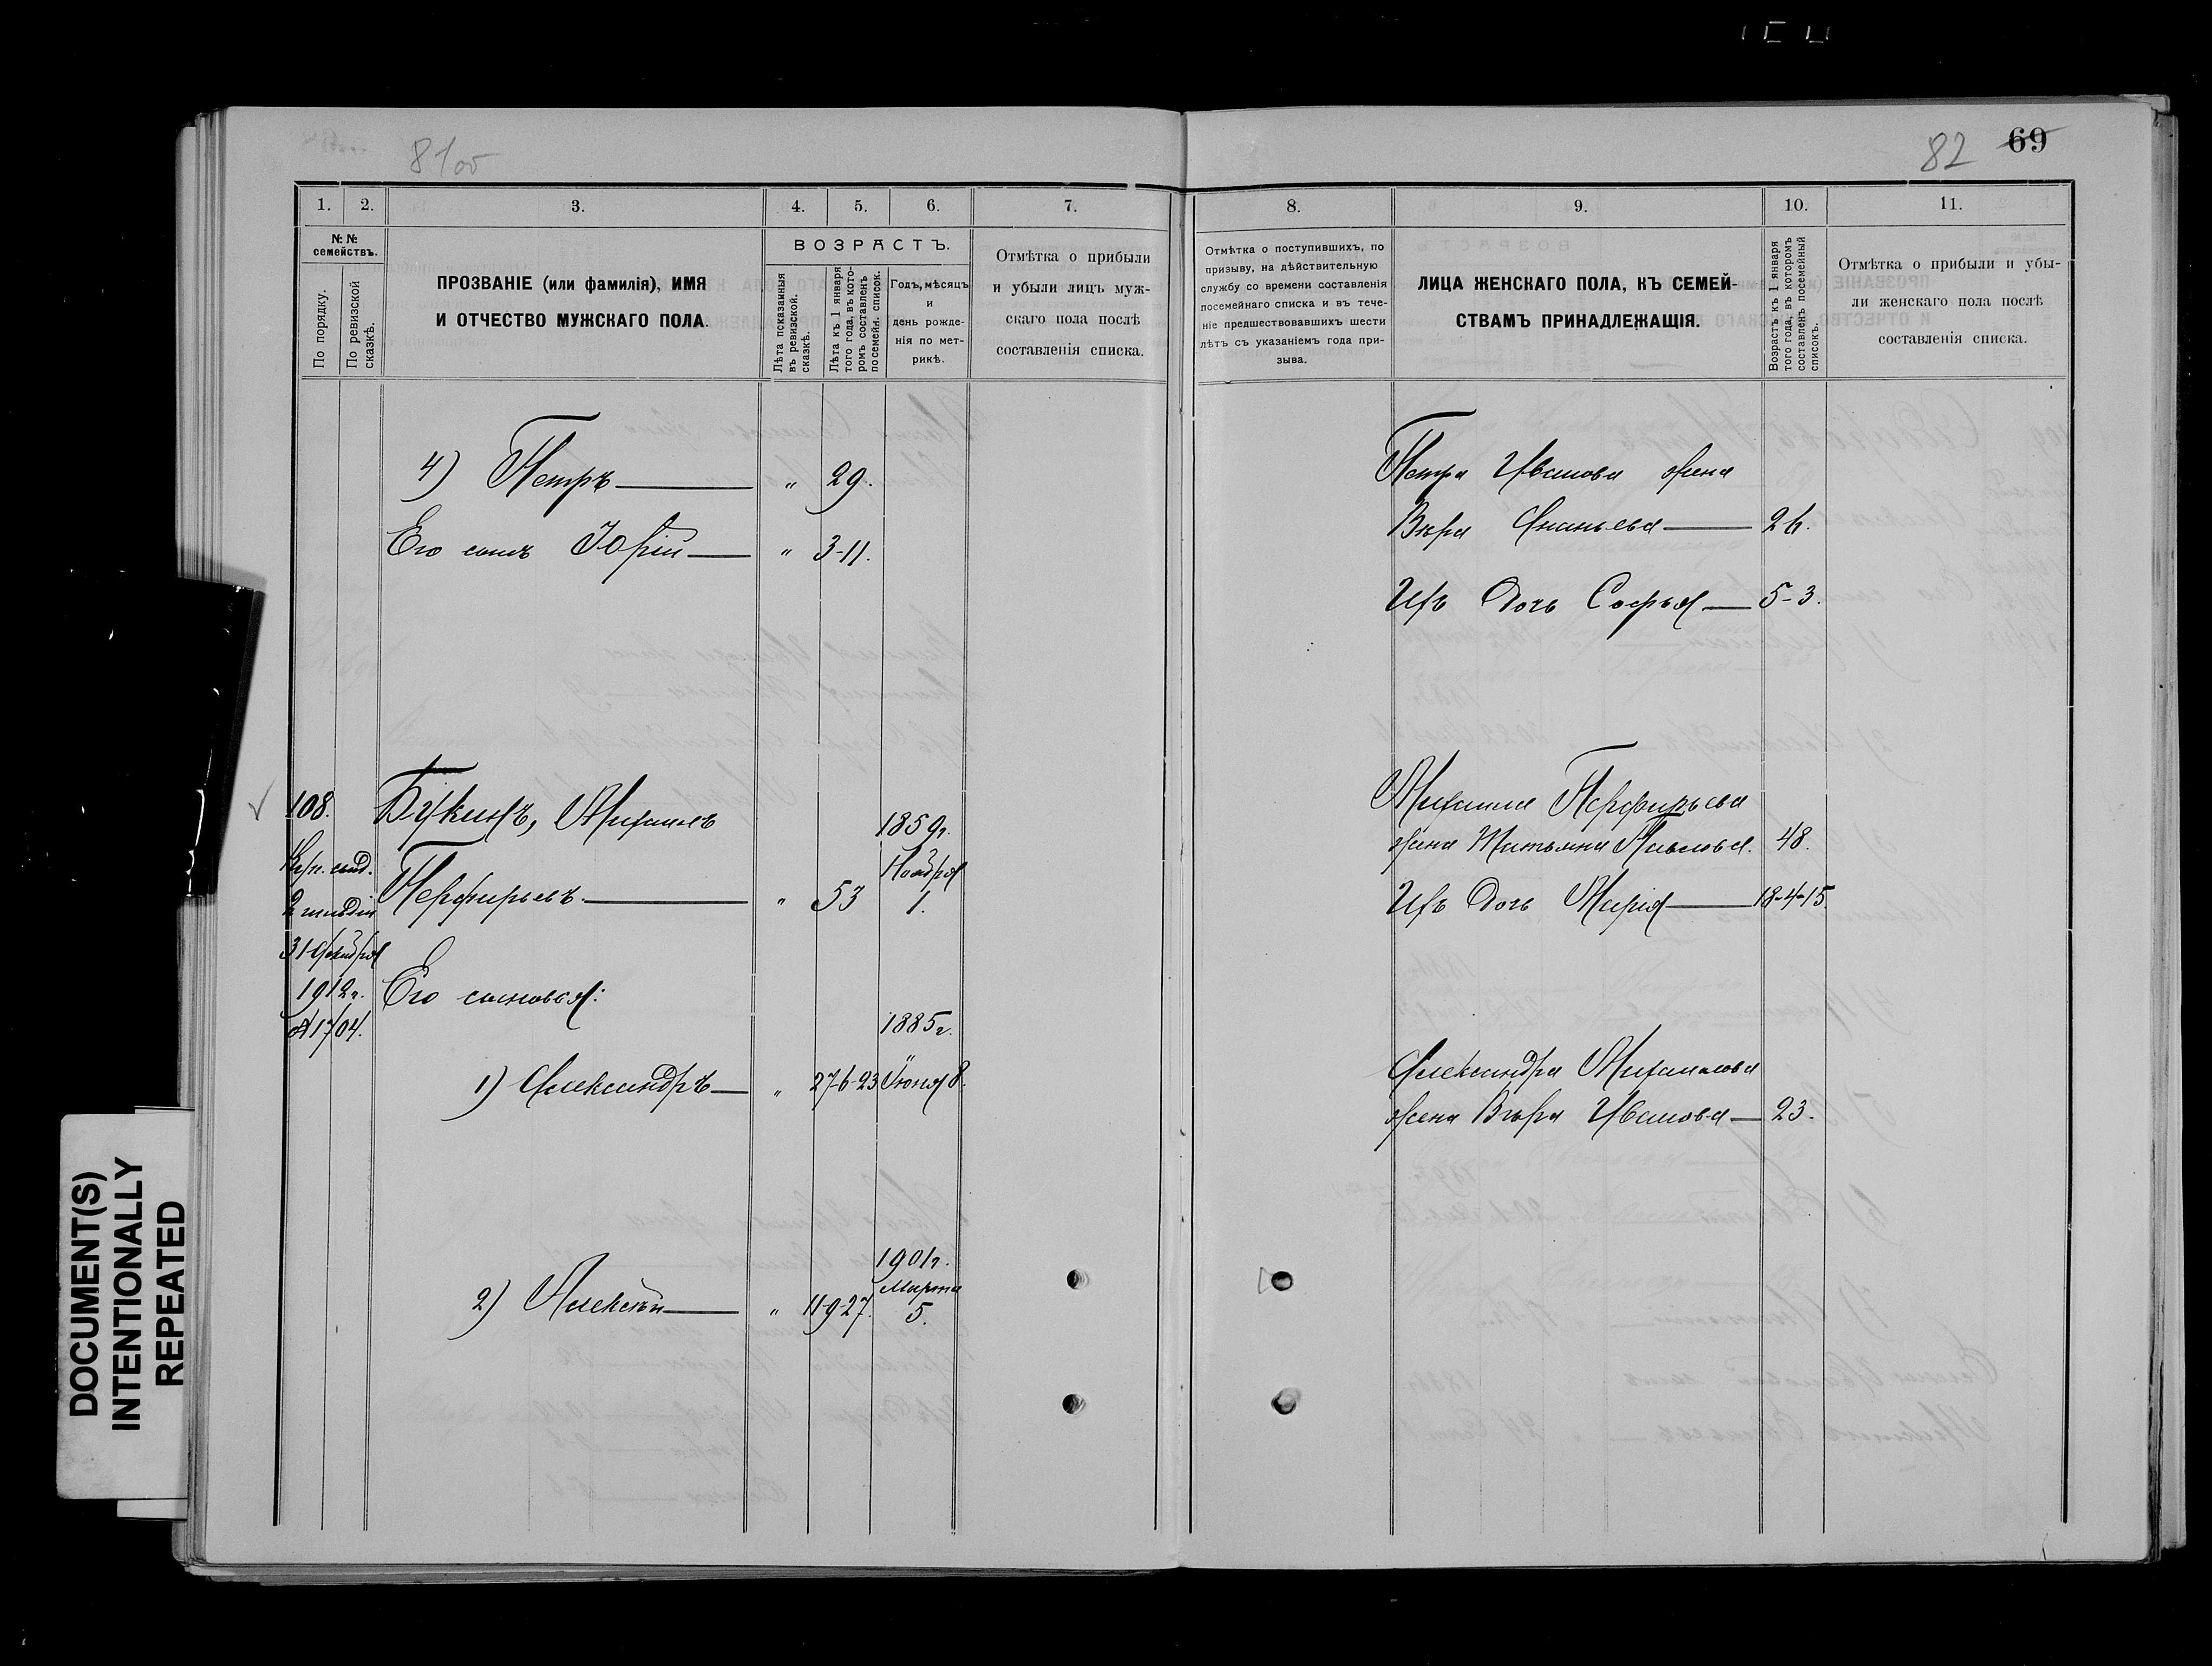 81 об
82 69
1. 2. 3. 4. 5. 6. 7.
№ №
семействъ.
По порядку.
По ревизской
сказкѣ.
ПРОЗВАНІЕ (или фамилія), ИМЯ
И ОТЧЕСТВО МУЖСКАГО ПОЛА.
ВОЗРАСТЪ.
Лѣта показанныя
въ ревизской.
сказкѣ.
Лѣта къ 1 января
того года, въ кото-
ромъ составленъ
посемейн. список.
Годъ, мѣсяцъ
и
день рожде-
нія по мет-
рикѣ.
Отмѣтка о прибыли
и убыли лицъ муж-
скаго пола послѣ
составленія списка.
4) Петръ " 29.
Его сынъ Юрій " 3-11.
108. Букинъ, Михаилъ 1859г.
Куп. сынъ. Ноября
2 гильдіи Перфирьевъ. " 53 1.
31 Октября
1912г. Его сыновья:
№ 1704. 1885г.
1) Александръ " 27-6-23 Іюня 8.
1901г.
Марта
2) Алексѣй " 11-9-27. 5.
8. 9. 10. 11.
Отмѣтка о поступившихъ, по
призыву, на дѣйствительную
службу со времени составленія
посемейнаго списка и въ тече-
ніе предшествовавшихъ шести
лѣтъ съ указаніемъ года при-
зыва.
ЛИЦА ЖЕНСКАГО ПОЛА, КЪ СЕМЕЙ-
СТВАМЪ ПРИНАДЛЕЖАЩІЯ.
Возрастъ къ 1 января
того года, въ которомъ
составленъ посемейный
списокъ.
Отмѣтка о прибыли и убы-
ли женскаго пола послѣ
составленія списка.
Петра Иванова жена
Вѣра Ананьева 26.
Ихъ дочь Софья 5-3.
Михаила Перфирьева
жена Татьяна Павлова. 48.
Ихъ дочь Марія 18-4-15.
Александра Михаилова
жена Вѣра Иванова 23.
DOCUMENT(S)
INTENTIONALLY
REPEATED